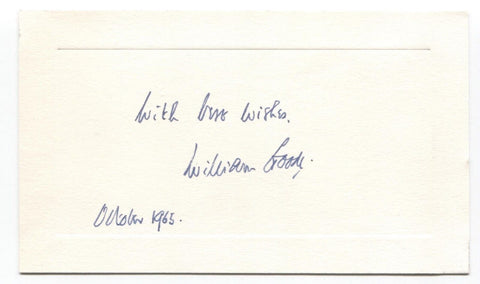 With best wishes.
William Goode.
October 1965.